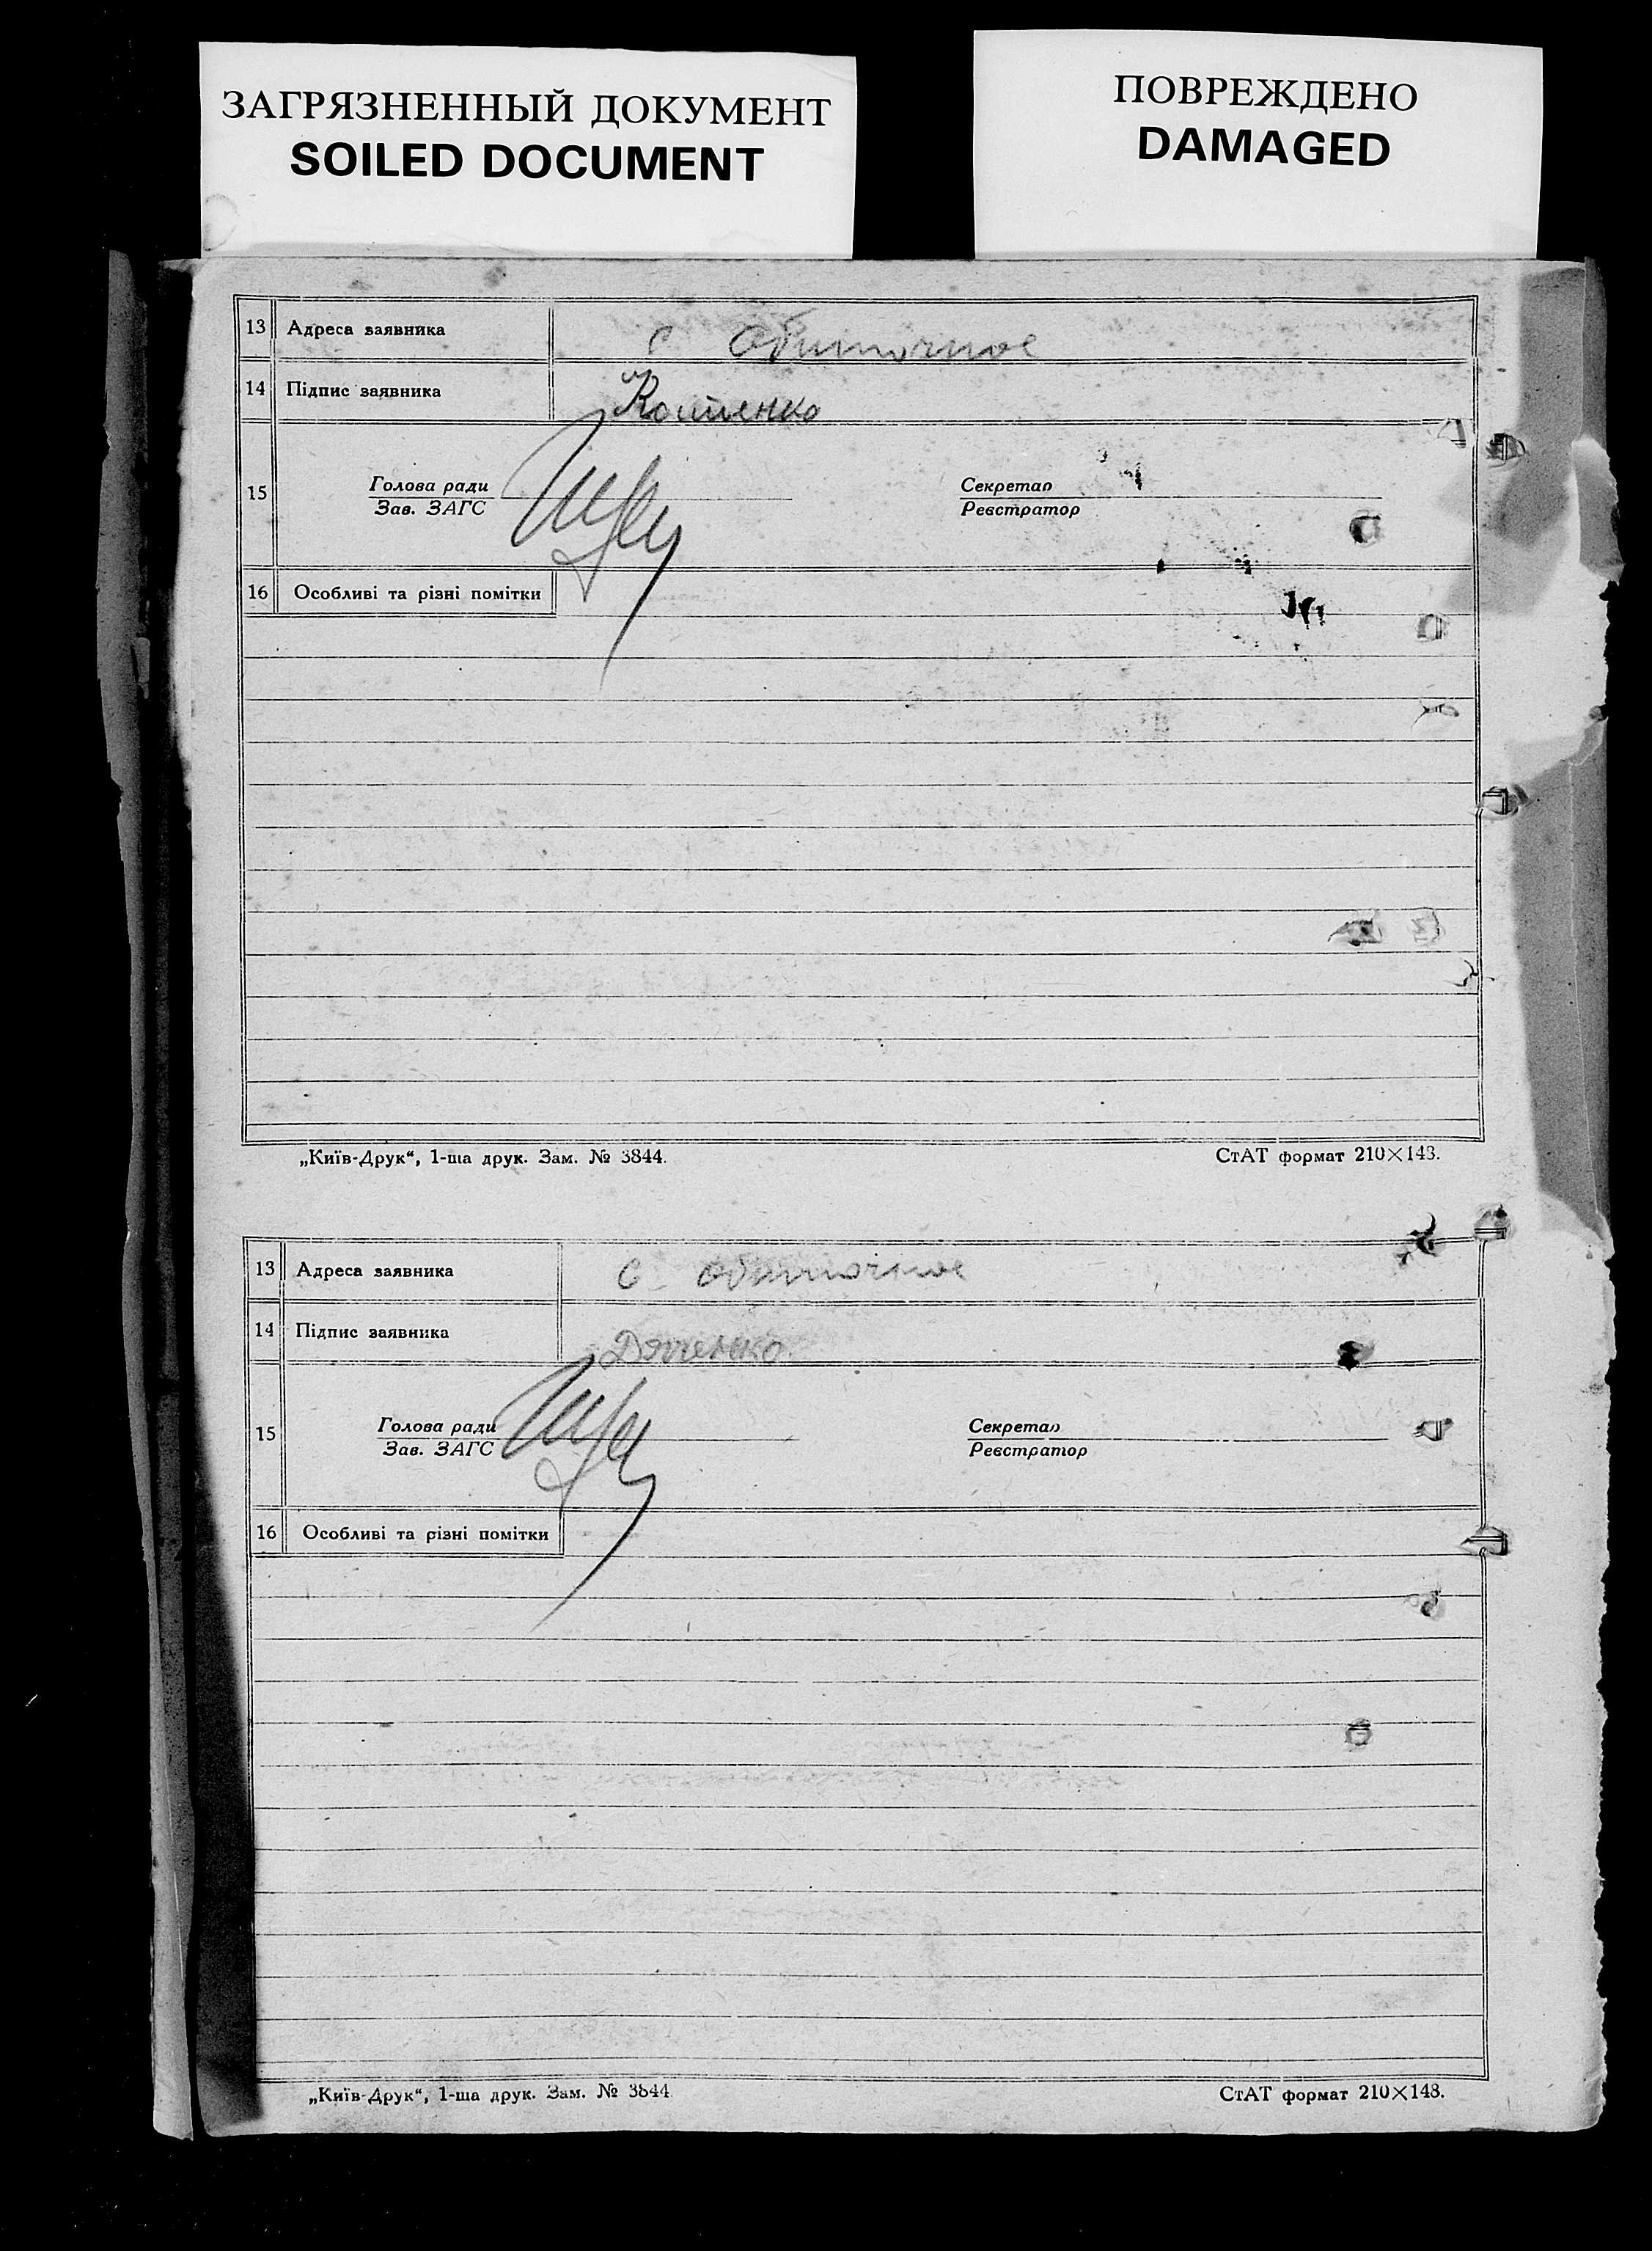 ЗАГРЯЗНЕННЫЙ ДОКУМЕНТ
SOILED DOCUMENT
ПОВРЕЖДЕНО
DAMAGED
13 Адреса заявника с
14 Підпис заявника
15 Голова ради
Зав. ЗАГС
Секретар
Реєстратор
16 Особливі та різні помітки
„Київ-Друк“, 1-ша друк. Зам. № 3844. СтАТ формат 210×148.
13 Адреса заявника с
14 Підпис заявника Дяченко
15 Голова ради
Зав. ЗАГС
Секретар
Реєстратор
16 Особливі та різні помітки
„Київ-Друк“, 1-ша друк. Зам. № 3844 СтАТ формат 210×148.